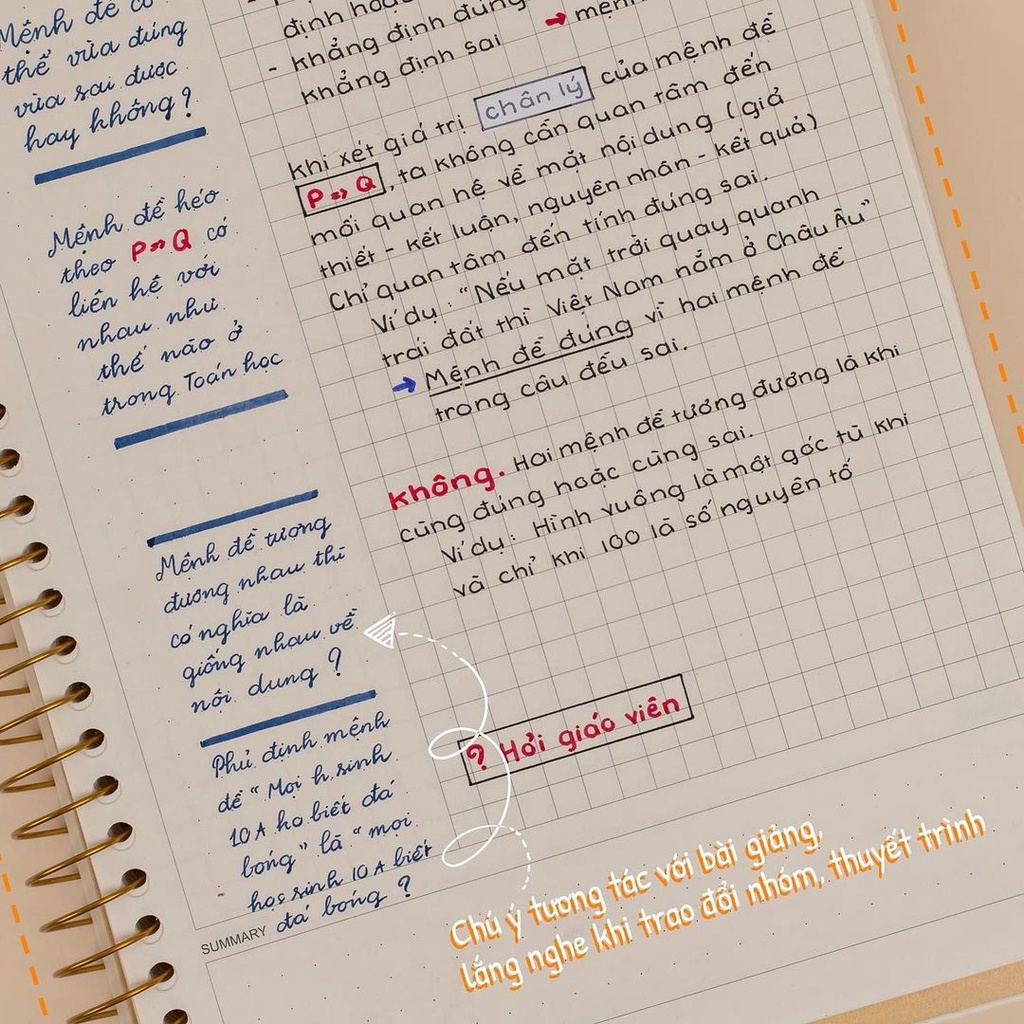 Mệnh đề có
thể vừa đúng
vừa sai được
hay không?
định hoặc
- khẳng định đúng
- khẳng định sai → mệnh
khi xét giá trị chân lý của mệnh đề
P => Q, ta không cần quan tâm đến
mối quan hệ về mặt nội dung (giả
thiết - kết luận, nguyên nhân - kết quả)
Chỉ quan tâm đến tính đúng sai.
Ví dụ: "Nếu mặt trời quay quanh
trái đất thì Việt Nam nằm ở Châu Âu"
→ Mệnh đề đúng vì hai mệnh đề
trong câu đều sai.
Mệnh đề kéo
theo P=>Q có
liên hệ với
nhau như
thế nào ở
trong Toán học
không. Hai mệnh đề tương đương là khi
cùng đúng hoặc cùng sai.
Ví dụ: Hình vuông là một góc tù khi
và chỉ khi 100 là số nguyên tố
Mệnh đề tương
đương nhau thì
có nghĩa là
giống nhau về
nội dung?
? Hỏi giáo viên
Phủ định mệnh
đề "Mọi h.sinh
10A ko biết đá
bóng" là "mọi
học sinh 10A biết
đá bóng?
SUMMARY
Chú ý tương tác với bài giảng,
lắng nghe khi trao đổi nhóm, thuyết trình